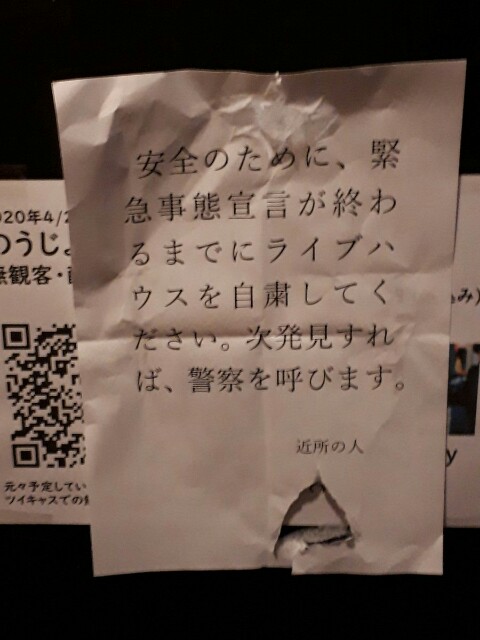 安全のために、緊
急事態宣言が終わ
るまでにライブハ
ウスを自粛してく
ださい。次発見すれ
ば、警察を呼びます。
近所の人
2020年4/2
のうじょ
無観客・
元々予定してい
ツイキャスでの